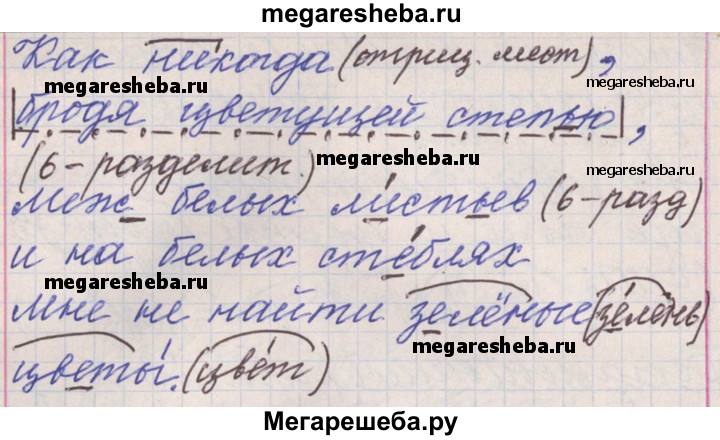 megaresheba.ru
Как никогда (отриц. мест),
megaresheba.ru
megaresheba.ru
бродя цветущей степью,
(6-разделит.)
megaresheba.ru
megaresheba.ru
меж белых листьев (6-разд)
и на белых стеблях
megaresheba.ru
мне не найти зелёные (зелень)
megaresheba.ru
цветы. (цвет)
Мегарешеба.ру